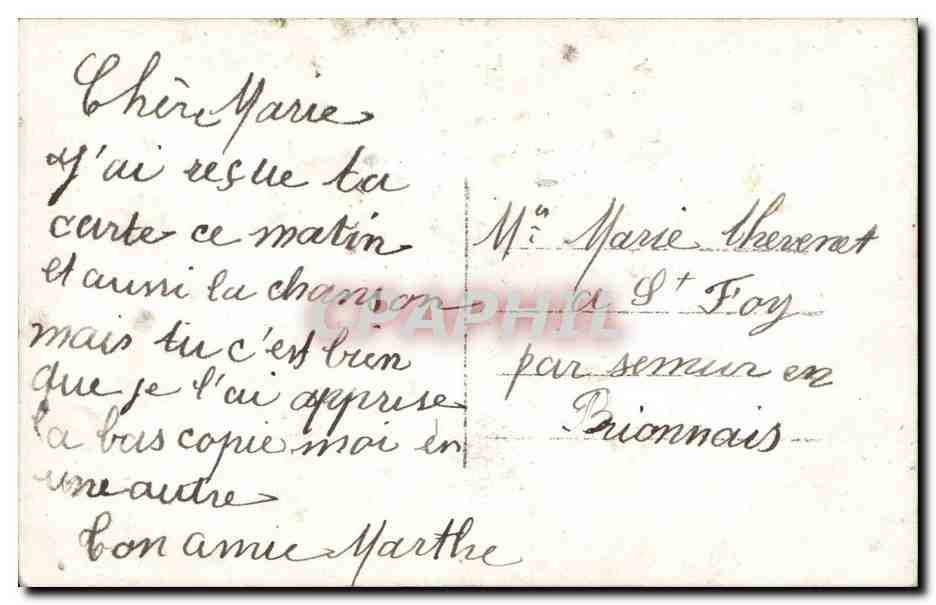 Chère Marie
J'ai reçue ta
carte ce matin
et aussi la chanson
mais tu c'est bien
que je l'ai apprise
la bas copie moi en
une autre
Ton amie Marthe
Mlle Marie Therenet
a St Foy
par semur en
Brionnais
CPAPHIL